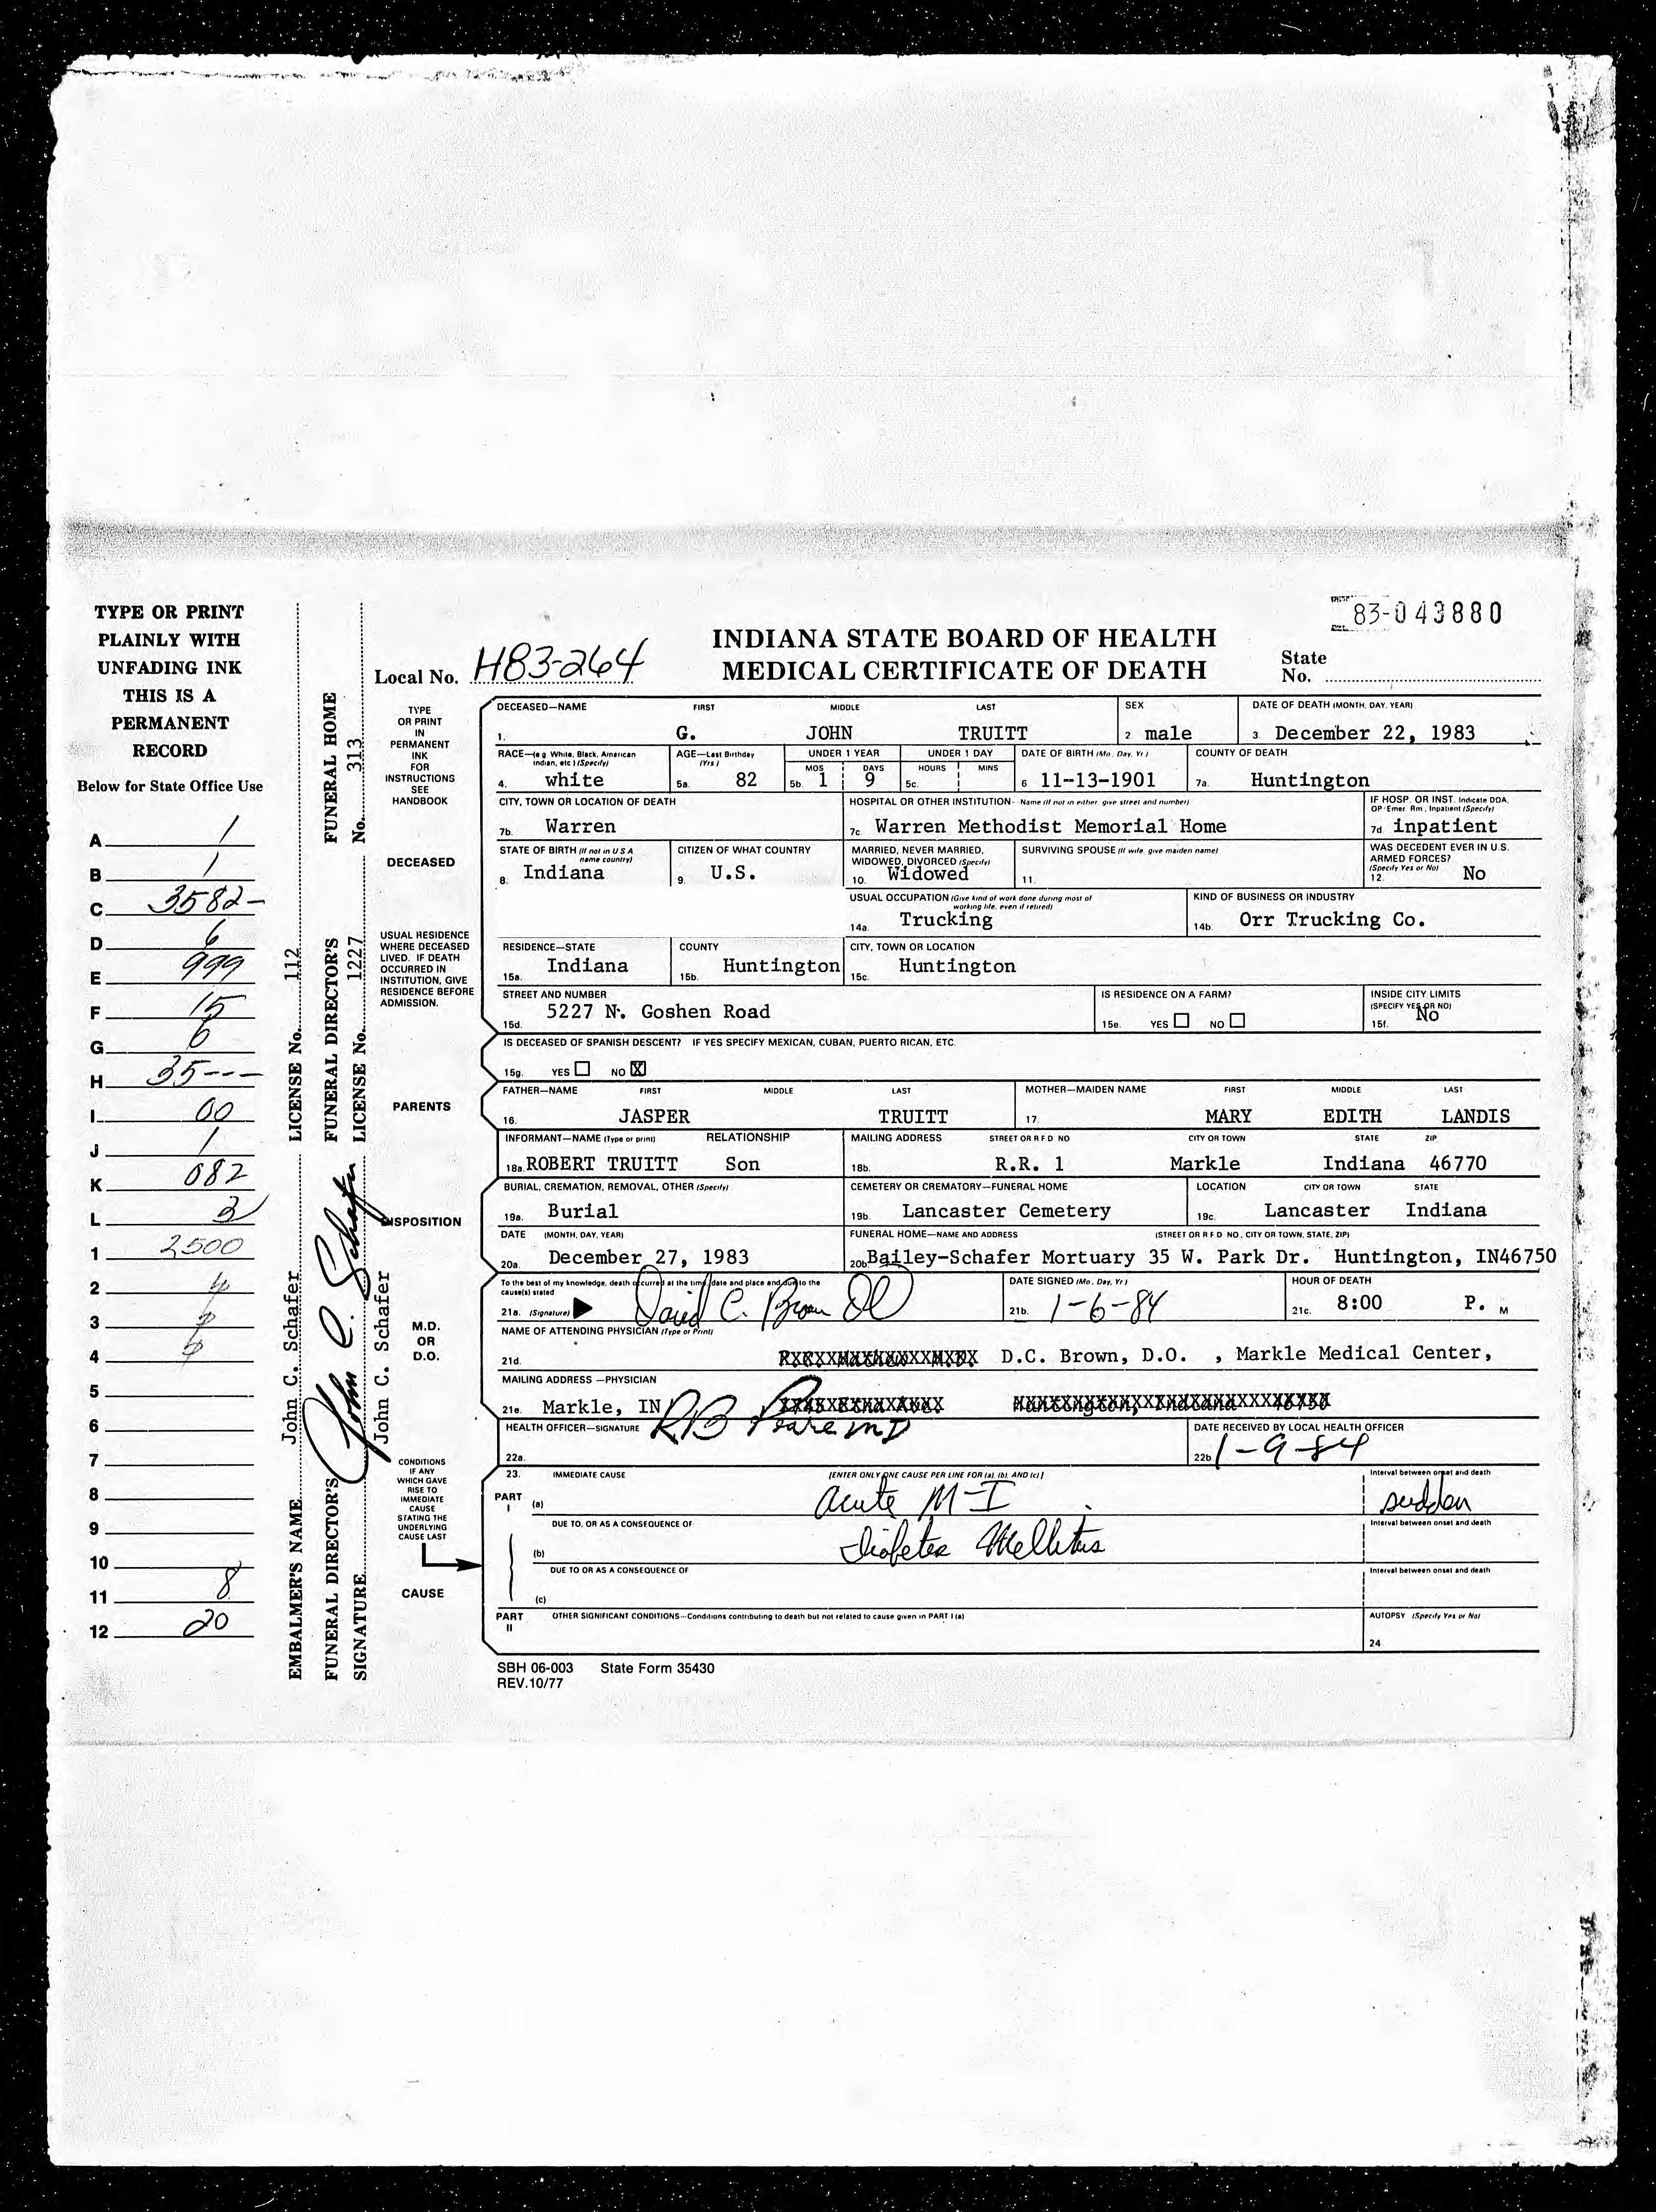 83-043880
INDIANA STATE BOARD OF HEALTH
MEDICAL CERTIFICATE OF DEATH
Local No. H83-264
State
No.
TYPE OR PRINT
PLAINLY WITH
UNFADING INK
THIS IS A
PERMANENT
RECORD
Below for State Office Use
A 1
B 1
C 3582-
D 6
E 999
F 15
G 6
H 35---
I 00
J 1
K 082
L 3
1 2500
2 4
3
4
5
6
7
8
9
10
11 8
12 20
EMBALMER'S NAME John C. Schafer LICENSE No. 112
FUNERAL DIRECTOR'S FUNERAL DIRECTOR'S FUNERAL HOME
SIGNATURE John C. Schafer LICENSE No. 1227 No. 313
John C. Schafer
TYPE
OR PRINT
IN
PERMANENT
INK
FOR
INSTRUCTIONS
SEE
HANDBOOK
DECEASED
USUAL RESIDENCE
WHERE DECEASED
LIVED. IF DEATH
OCCURRED IN
INSTITUTION, GIVE
RESIDENCE BEFORE
ADMISSION.
PARENTS
DISPOSITION
M.D.
OR
D.O.
CONDITIONS
IF ANY
WHICH GAVE
RISE TO
IMMEDIATE
CAUSE
STATING THE
UNDERLYING
CAUSE LAST
CAUSE
DECEASED—NAME FIRST MIDDLE LAST SEX DATE OF DEATH (MONTH, DAY, YEAR)
1. G. JOHN TRUITT 2 male 3 December 22, 1983
RACE—(e.g. White, Black, American Indian, etc.) (Specify) AGE—Last Birthday (Yrs.) UNDER 1 YEAR UNDER 1 DAY DATE OF BIRTH (Mo., Day, Yr.) COUNTY OF DEATH
MOS DAYS HOURS MINS
4. white 5a. 82 5b. 1 9 5c. 6 11-13-1901 7a. Huntington
CITY, TOWN OR LOCATION OF DEATH HOSPITAL OR OTHER INSTITUTION—Name (If not in either, give street and number) IF HOSP. OR INST. Indicate DOA, OP/Emer. Rm., Inpatient (Specify)
7b. Warren 7c. Warren Methodist Memorial Home 7d. inpatient
STATE OF BIRTH (If not in U S A name country) CITIZEN OF WHAT COUNTRY MARRIED, NEVER MARRIED, WIDOWED, DIVORCED (Specify) SURVIVING SPOUSE (If wife, give maiden name) WAS DECEDENT EVER IN U.S. ARMED FORCES? (Specify Yes or No)
8. Indiana 9. U.S. 10. Widowed 11. 12. No
USUAL OCCUPATION (Give kind of work done during most of working life, even if retired) KIND OF BUSINESS OR INDUSTRY
14a. Trucking 14b. Orr Trucking Co.
RESIDENCE—STATE COUNTY CITY, TOWN OR LOCATION
15a. Indiana 15b. Huntington 15c. Huntington
STREET AND NUMBER IS RESIDENCE ON A FARM? INSIDE CITY LIMITS (SPECIFY YES OR NO)
15d. 5227 N. Goshen Road 15e. YES NO 15f. No
IS DECEASED OF SPANISH DESCENT? IF YES SPECIFY MEXICAN, CUBAN, PUERTO RICAN, ETC.
15g. YES NO X
FATHER—NAME FIRST MIDDLE LAST MOTHER—MAIDEN NAME FIRST MIDDLE LAST
16. JASPER TRUITT 17. MARY EDITH LANDIS
INFORMANT—NAME (Type or print) RELATIONSHIP MAILING ADDRESS STREET OR R F D NO CITY OR TOWN STATE ZIP
18a. ROBERT TRUITT Son 18b. R.R. 1 Markle Indiana 46770
BURIAL, CREMATION, REMOVAL, OTHER (Specify) CEMETERY OR CREMATORY—FUNERAL HOME LOCATION CITY OR TOWN STATE
19a. Burial 19b. Lancaster Cemetery 19c. Lancaster Indiana
DATE (MONTH, DAY, YEAR) FUNERAL HOME—NAME AND ADDRESS (STREET OR R F D NO., CITY OR TOWN, STATE, ZIP)
20a. December 27, 1983 20b. Bailey-Schafer Mortuary 35 W. Park Dr. Huntington, IN46750
To the best of my knowledge, death occurred at the time, date and place and due to the cause(s) stated DATE SIGNED (Mo., Day, Yr.) HOUR OF DEATH
21a. (Signature) David C. Brown DO 21b. 1-6-84 21c. 8:00 P. M
NAME OF ATTENDING PHYSICIAN (Type or Print)
21d. D.C. Brown, D.O. , Markle Medical Center,
MAILING ADDRESS —PHYSICIAN
21e. Markle, IN
HEALTH OFFICER—SIGNATURE DATE RECEIVED BY LOCAL HEALTH OFFICER
22a. RB MD 22b. 1-9-84
23. IMMEDIATE CAUSE [ENTER ONLY ONE CAUSE PER LINE FOR (a), (b), AND (c)] Interval between onset and death
PART I (a) Acute M-I sudden
DUE TO, OR AS A CONSEQUENCE OF Interval between onset and death
(b) Diabetes Mellitus
DUE TO OR AS A CONSEQUENCE OF Interval between onset and death
(c)
PART II OTHER SIGNIFICANT CONDITIONS—Conditions contributing to death but not related to cause given in PART I (a) AUTOPSY (Specify Yes or No)
24
SBH 06-003 State Form 35430
REV.10/77